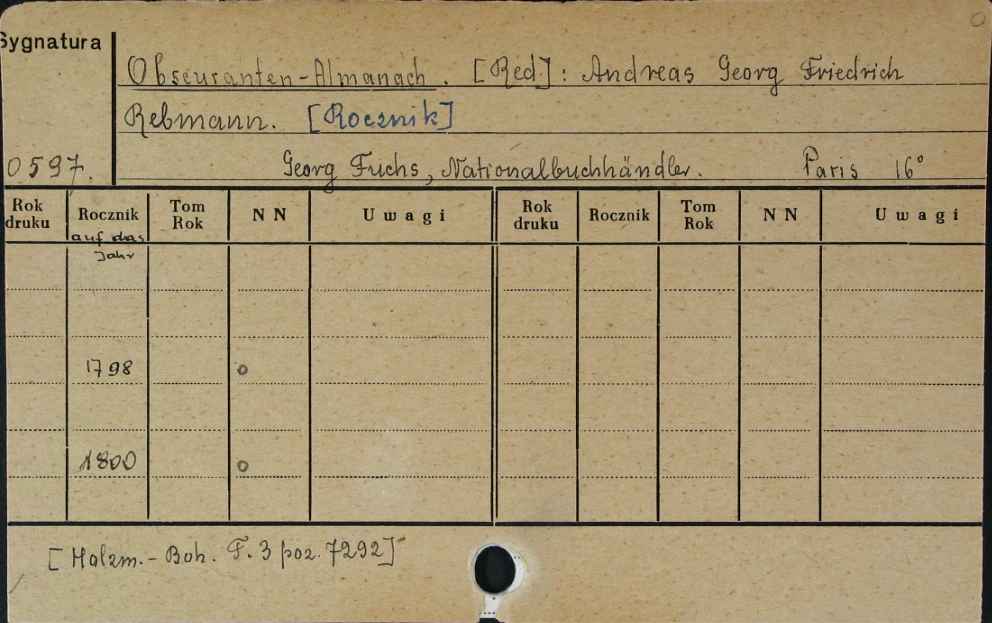 Sygnatura
Obscuranten-Almanach. [Red.]: Andreas Georg Friedrich
Rebmann. [Rocznik]
0597. Georg Fuchs, Nationalbuchhändler. Paris 16°
Rok druku Rocznik Tom Rok NN Uwagi Rok druku Rocznik Tom Rok NN Uwagi
auf das
Jahr
1798 o
1800 o
[Holzm.-Boh. T. 3 poz. 7292]